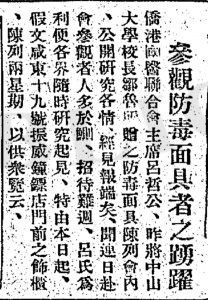 參觀防毒面具者之踴躍
僑港國醫聯合會主席呂哲公、昨將中山
大學校長鄒魯所贈之防毒面具陳列會內
、公開研究各情、經見報端矣、聞連日赴
會參觀者人多於鯽、招待難週、呂氏為
利便各界隨時研究起見、特由本日起、
假文咸東十九號振威鐘鏢店門前之飾櫃
、陳列兩星期、以供衆覽云、